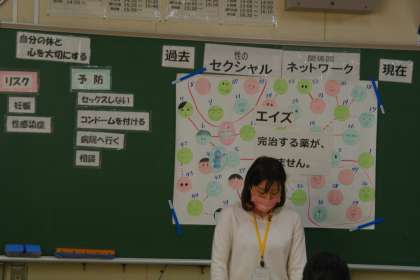 自分の体と
心を大切にする
リスク
妊娠
性感染症
予防
セックスしない
コンドームを付ける
病院へ行く
相談
過去
性の
セクシャル
関係図
ネットワーク
現在
エイズ
完治する薬が、
ません。